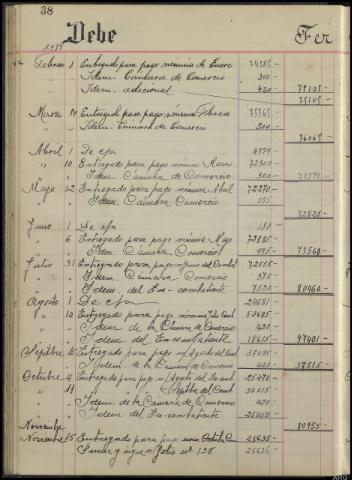 38
Debe Fer
1939
Febrero 1 Entregado para pago nómina de Enero 74385-
" " Idem. Cámara de Comercio 300-
" " Idem. adicional 420- 75105-
75105-
Marzo 14 Entregado para pago nómina Febrero 75765-
" " Idem. Cámara de Comercio 300- 76065-
Abril 1 De cja 4979-
" 10 Entregado para pago nómina Marzo 72300-
" " Idem Cámara de Comercio 300- 77579-
Mayo 12 Entregado para pago nómina Abril 72270-
" " Idem. Cámara Comercio 555-
72825-
Junio 1 De cja 180-
" 6 Entregado para pago nómina Mayo 72885-
" " Idem. Cámara Comercio 495- 73560-
Julio 31 Entregado para pago del 72555-
" " Idem. Cámara Comercio 375-
" " Idem. del Ex-combatiente 7530- 80460-
Agosto 1 De cja 24681-
" 10 Entregado para pago nómina Julio 53685-
" " Idem de la Cámara de Comercio 420-
" " Idem. del Ex-combatiente 18615- 97401-
Septbre Entregado para pago Agosto del 37095-
" " Idem de la Cámara de Comercio 420- 37515-
Octubre 4 Entregado para pago Agosto del 25470-
" 14 " " " Septbre del 30015-
" " Idem. de la Cámara de Comercio 420-
" " Idem. del Ex-combatiente 25050-
80955-
Noviembre
Noviembre 15 Entregado para pago nom Octubre 25635-
Suma y sigue al folio nº 138 25635-